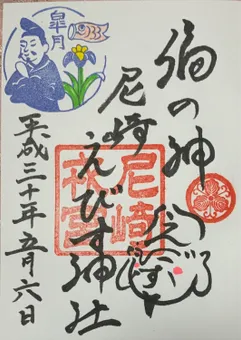 皐月
福の神
尼崎えびす神社
尼崎
平成三十年五月六日